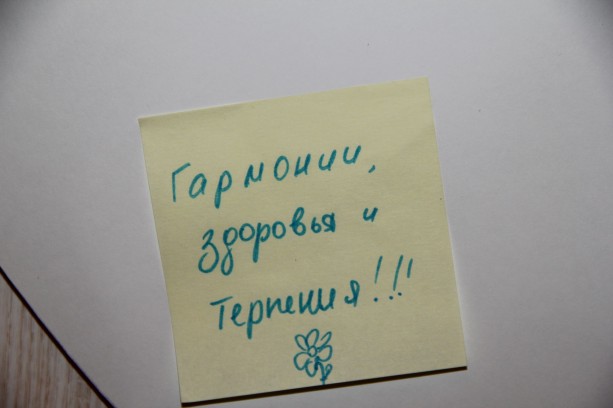 Гармонии,
здоровья и
терпения!!!